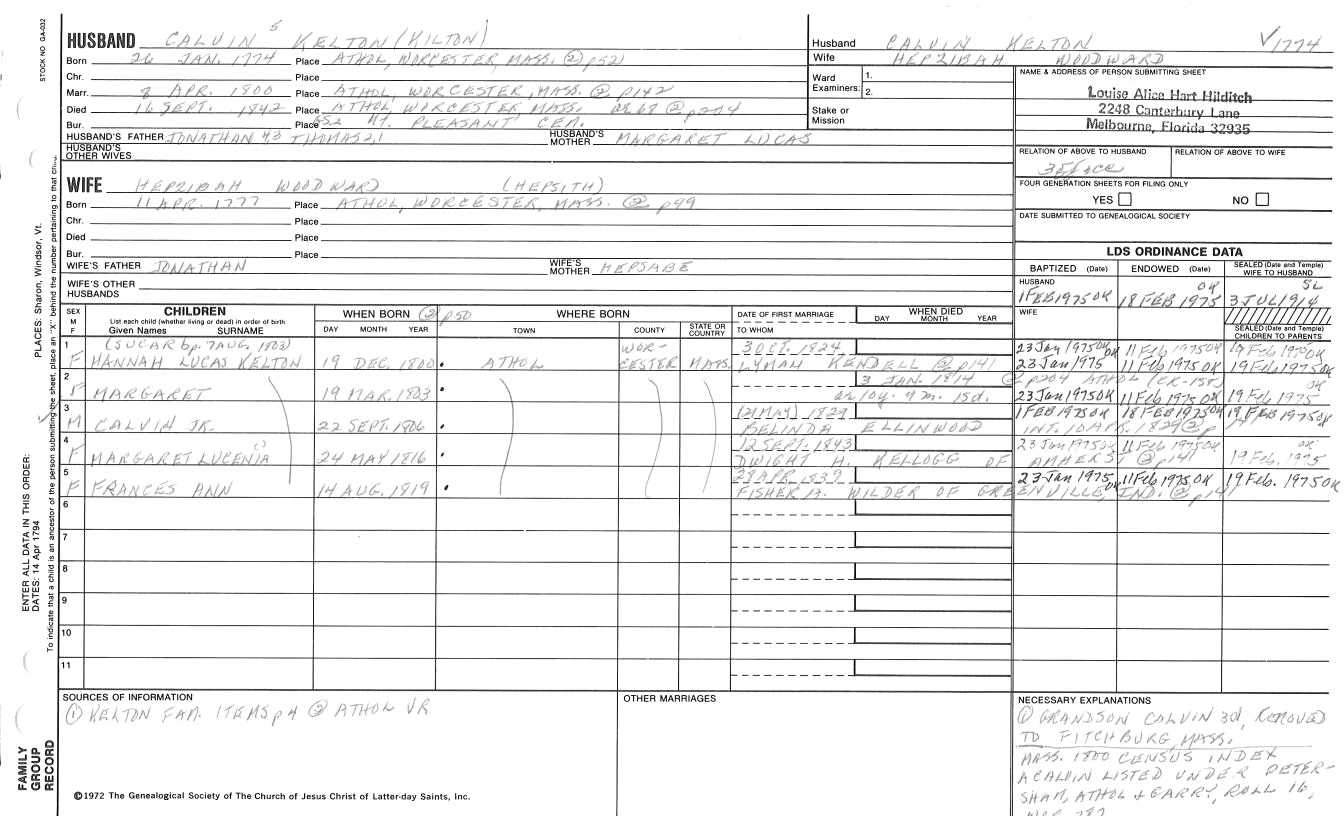 STOCK NO GA-032
PLACES: Sharon, Windsor, Vt.
ENTER ALL DATA IN THIS ORDER:
DATES: 14 Apr 1794
To indicate that a child is an ancestor of the person submitting the sheet, place an "X" behind the number pertaining to that
FAMILY GROUP RECORD
HUSBAND CALVIN 5 KELTON (KILTON)
Born 26 JAN. 1774 Place ATHOL, WORCESTER, MASS. ② p52
Chr. Place
Marr. 8 APR. 1800 Place ATHOL, WORCESTER, MASS. ② p142
Died 16 SEPT. 1842 Place ATHOL, WORCESTER, MASS. ② p204
Bur. Place MT. PLEASANT CEM.
HUSBAND'S FATHER JONATHAN 4,3 THOMAS 2,1 HUSBAND'S MOTHER MARGARET LUCAS
HUSBAND'S OTHER WIVES
WIFE HEPZIBAH WOODWARD (HEPSITH)
Born 11 APR. 1777 Place ATHOL, WORCESTER, MASS. ② p99
Chr. Place
Died Place
Bur. Place
WIFE'S FATHER JONATHAN WIFE'S MOTHER HEPSABE
WIFE'S OTHER HUSBANDS
Husband CALVIN KELTON √1774
Wife HEPZIBAH WOODWARD
Ward 1.
Examiners: 2.
Stake or Mission
NAME & ADDRESS OF PERSON SUBMITTING SHEET
Louise Alice Hart Hilditch
2248 Canterbury Lane
Melbourne, Florida 32935
RELATION OF ABOVE TO HUSBAND RELATION OF ABOVE TO WIFE
FOUR GENERATION SHEETS FOR FILING ONLY
YES NO
DATE SUBMITTED TO GENEALOGICAL SOCIETY
LDS ORDINANCE DATA
BAPTIZED (Date) ENDOWED (Date) SEALED (Date and Temple) WIFE TO HUSBAND
HUSBAND OK SL
1 FEB 1975 OK 18 FEB 1975 3 JUL 1914
WIFE
SEALED (Date and Temple) CHILDREN TO PARENTS
SEX M F CHILDREN WHEN BORN ② p50 WHERE BORN DATE OF FIRST MARRIAGE WHEN DIED
List each child (whether living or dead) in order of birth
Given Names SURNAME DAY MONTH YEAR TOWN COUNTY STATE OR COUNTRY TO WHOM DAY MONTH YEAR
1 (SUCAR bp. 7 AUG. 1803) WOR- 3 OCT. 1824 23 Jan 1975 OK 11 Feb 1975 OK 19 Feb 1975 OK
F HANNAH LUCAS KELTON 19 DEC. 1800 ATHOL CESTER MASS. LYMAN KENDELL ② p141 23 Jan 1975 OK 11 Feb 1975 OK 19 Feb 1975 OK
2 3 JAN. 1814 ② p204 ATHOL OK
F MARGARET 19 MAR. 1803 10y. 9m. 15d. 23 Jan 1975 OK 11 Feb 1975 OK 19 Feb 1975
3 1829 1 FEB 1975 OK 18 FEB 1975 OK 19 FEB 1975 OK
M CALVIN JR. 22 SEPT. 1806 BELINDA ELLINWOOD INT. 10 APR. 1829 ② p
4 12 SEPT. 1843 23 Jan 1975 OK 11 Feb 1975 OK OK
F MARGARET LUCENIA 24 MAY 1816 DWIGHT A. KELLOGG OF AMHERST ② p141 19 Feb. 1975
5 1839 23 Jan 1975 OK 11 Feb 1975 OK 19 Feb. 1975 OK
F FRANCES ANN 14 AUG. 1819 FISHER A. WILDER OF GREENVILLE, IND. ② p141
6
7
8
9
10
11
SOURCES OF INFORMATION
① KELTON FAM. ITEMS p4 ② ATHOL VR
OTHER MARRIAGES
NECESSARY EXPLANATIONS
① GRANDSON CALVIN 3d, REMOVED
TO FITCHBURG, MASS.
MASS. 1800 CENSUS INDEX
A CALVIN LISTED UNDER PETER-
SHAM, ATHOL & GARRY, ROLL 16,
©1972 The Genealogical Society of The Church of Jesus Christ of Latter-day Saints, Inc.